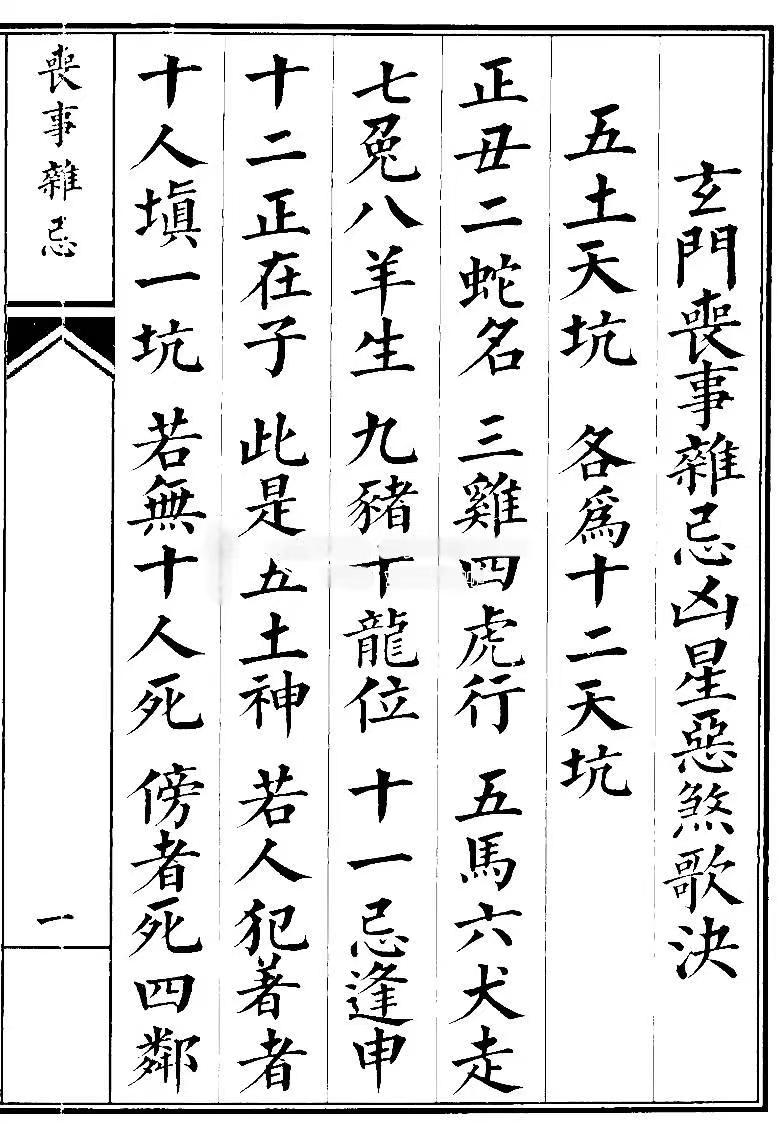 玄門喪事雜忌凶星惡煞歌決
五土天坑 各爲十二天坑
正丑二蛇名 三雞四虎行 五馬六犬走
七兔八羊生 九豬十龍位 十一忌逢申
十二正在子 此是五土神 若人犯著者
十人填一坑 若無十人死 傍者死四鄰
喪事雜忌
一